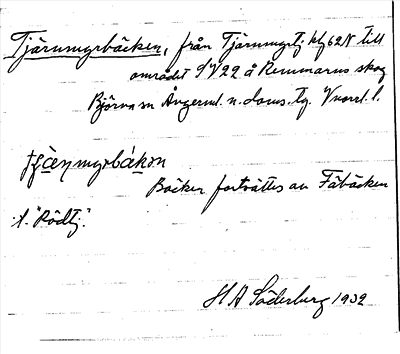 Tjärnmyrbäcken, från Tjärnmyrtj. kbl 62N till
området S/V 22 å Remmarns skog
Björna sn Ångerml. n. doms. tg. Vnorrl. l.
Bäcken fortsättes av Fäbäcken
t. "Rödtj."
H A Söderberg 1932